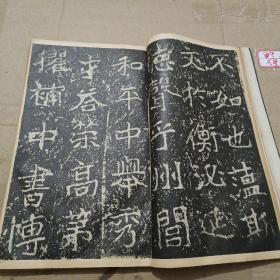 不如也蘊斯
文於衡泌延
德聲乎州閭
和平中舉秀
才荅策高第
擢補中書博